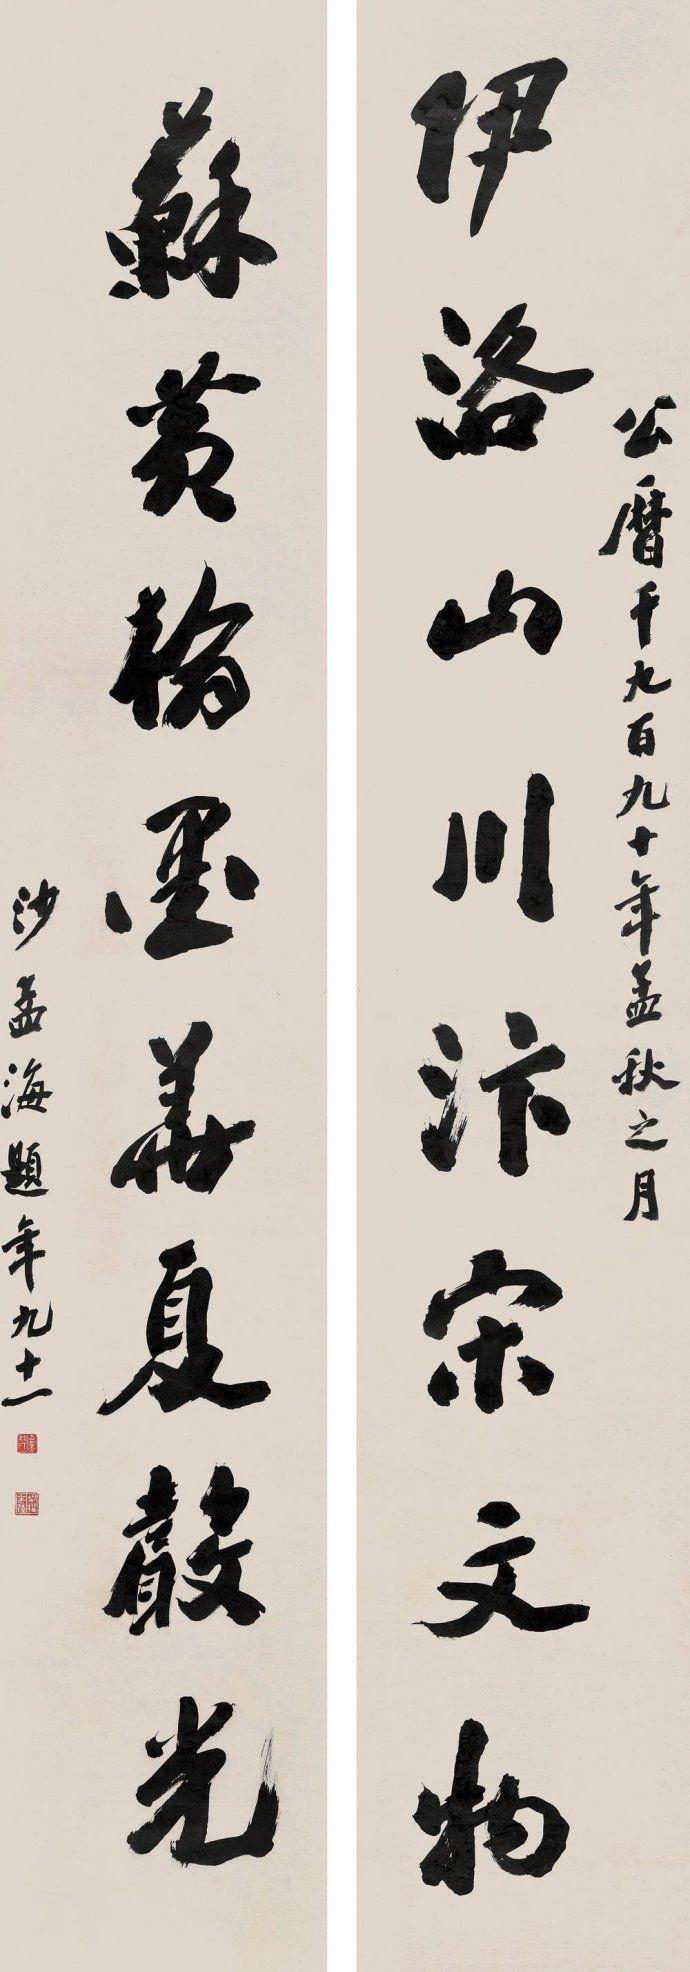 公曆千九百九十年孟秋之月
伊洛山川汴宋文物
蘇黄翰墨華夏聲光
沙孟海題年九十一